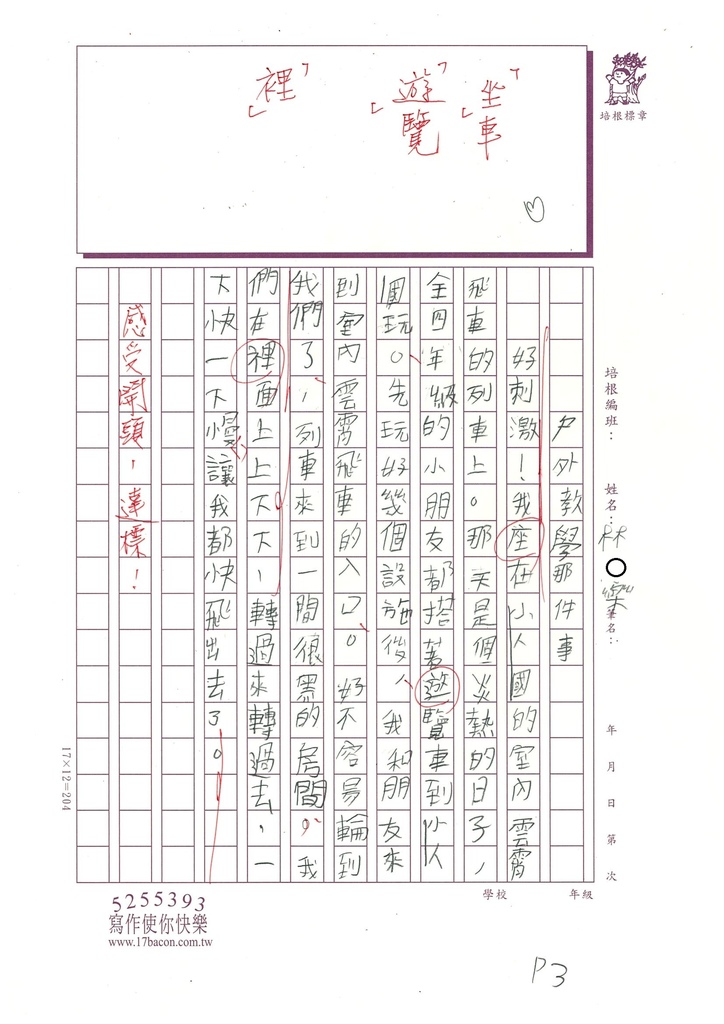 「坐車」
「遊覽」
「裡」
培根標章
培根編班：
姓名：林○樂
筆名：
年 月 日 第 次
學校 年級
戶外教學那件事
好刺激！我座在小人國的室內雲霄
飛車的列車上。那天是個炎熱的日子，
全四年級的小朋友都搭著遊覽車到小人
國玩。先玩好幾個設施後，我和朋友來
到室內雲霄飛車的入口。好不容易輪到
我們了，列車來到一間很黑的房間，我
們在裡面上上下下，轉過來轉過去，一
下快一下慢讓我都快飛出去了。
感受開頭，達標！
17×12=204
5255393
寫作使你快樂
www.17bacon.com.tw
P3